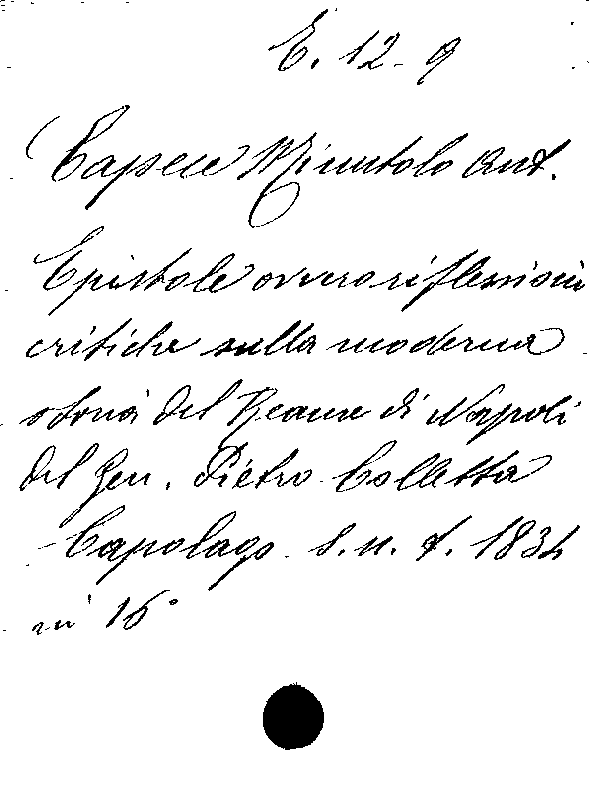 E. 12-9
Capece Minutolo Ant.
Epistole ovvero riflessioni
critiche sulla moderna
storia del Reame di Napoli
del Gen. Pietro Colletta
- Capolago s. n. t. 1834
in 16°